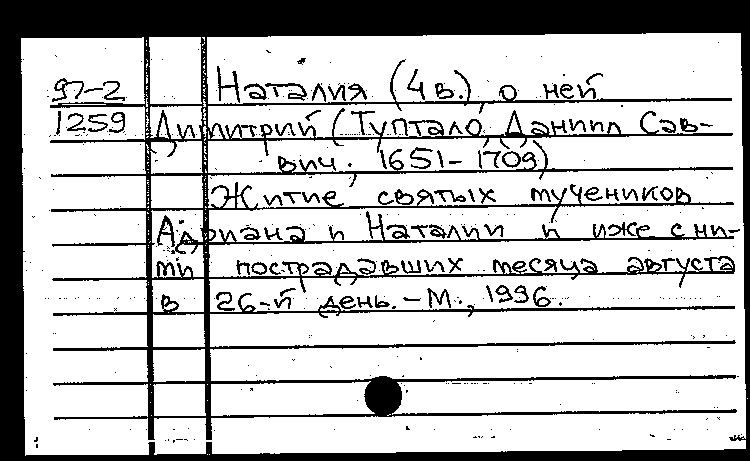 97-2 Наталия (4 в.), о ней
1259 Димитрий (Туптало, Даниил Сав-
вич; 1651-1709)
Житие святых мучеников
Адриана и Наталии и иже с ни-
ми пострадавших месяца августа
в 26-й день. - М., 1996.